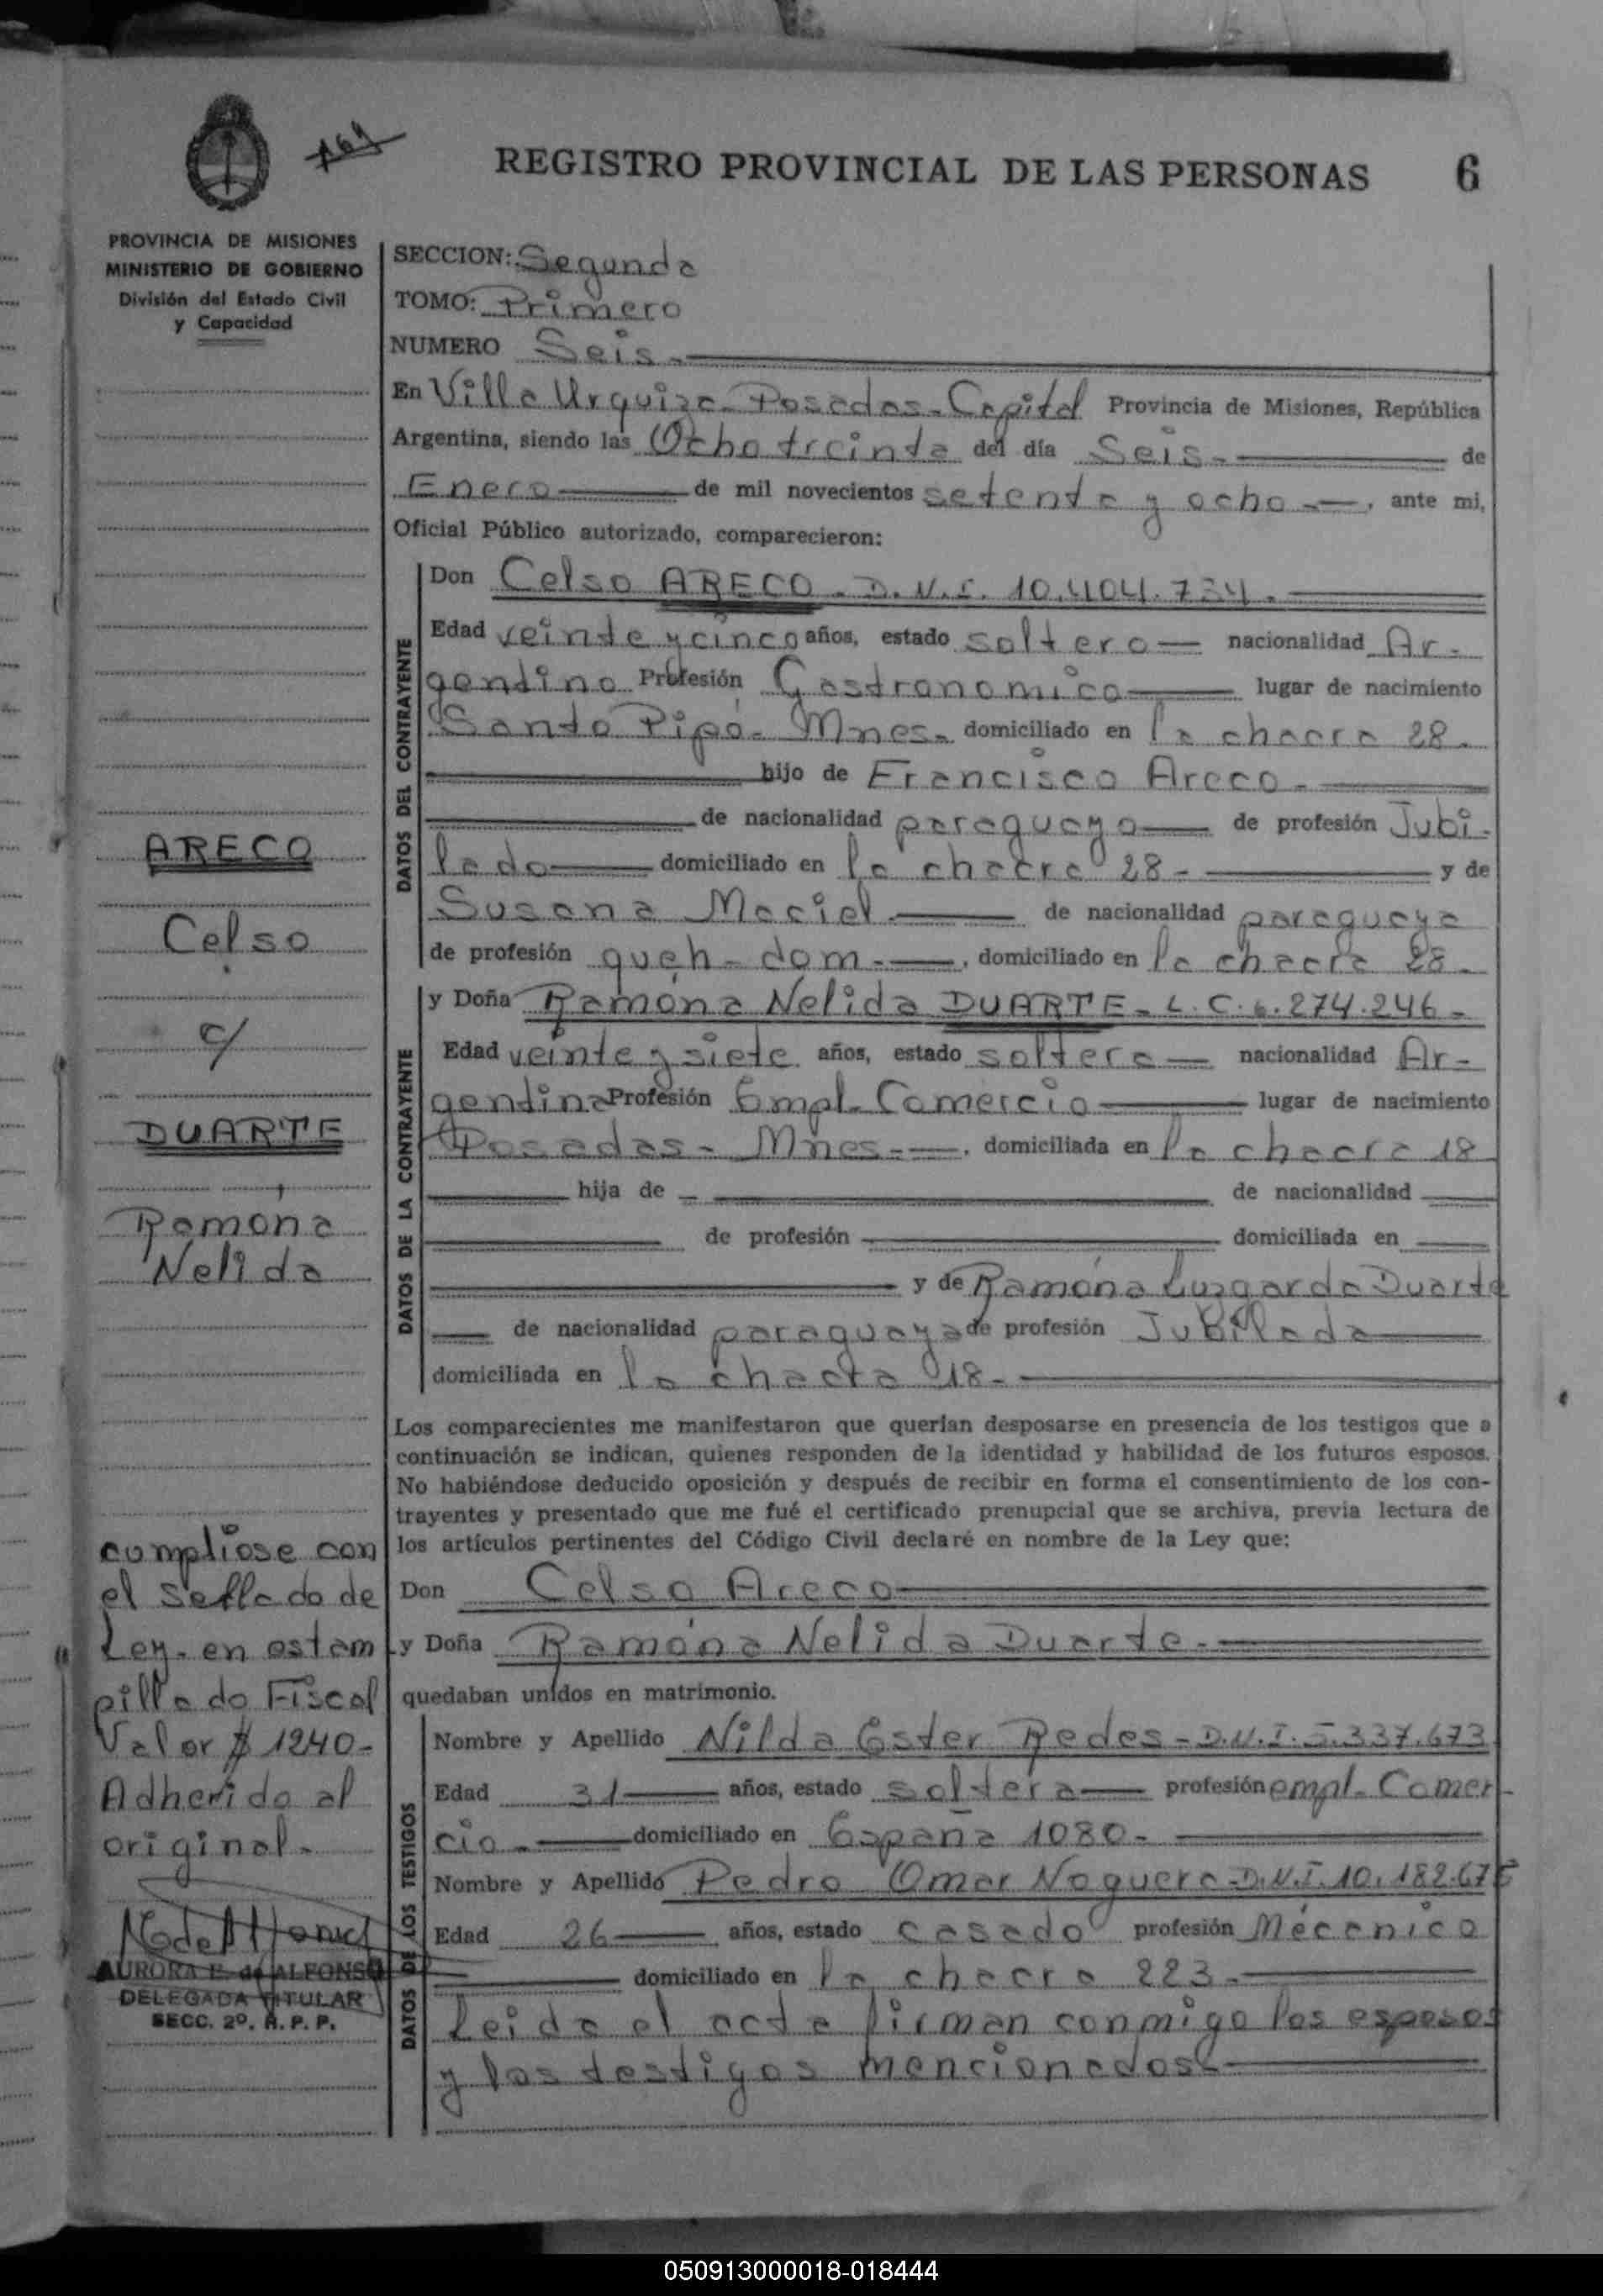 REGISTRO PROVINCIAL DE LAS PERSONAS 6
PROVINCIA DE MISIONES
MINISTERIO DE GOBIERNO
División del Estado Civil
y Capacidad
SECCION: Segunda
TOMO: Primero
NUMERO Seis.
En Villa Urquiza - Posadas - Capital Provincia de Misiones, República
Argentina, siendo las Ocho treinta del día Seis. de
Enero de mil novecientos setenta y ocho, ante mi,
Oficial Público autorizado, comparecieron:
DATOS DEL CONTRAYENTE
Don Celso ARECO - D.N.I. 10.404.734.
Edad veinte y cinco años, estado soltero nacionalidad Ar-
gentino Profesión Gastronomico lugar de nacimiento
Santo Pipó - Mnes. domiciliado en la chacra 28.
hijo de Francisco Areco.
de nacionalidad paraguayo de profesión Jubi-
lado domiciliado en la chacra 28 - y de
Susana Maciel de nacionalidad paraguaya
de profesión queh - dom -, domiciliado en la chacra 28.
DATOS DE LA CONTRAYENTE
y Doña Ramona Nelida DUARTE - L.C. 6.274.246 -
Edad veinte y siete años, estado soltera nacionalidad Ar-
gentina Profesión Empl - Comercio lugar de nacimiento
Posadas - Mnes -, domiciliada en la chacra 18
hija de de nacionalidad
de profesión domiciliada en
y de Ramona Luzgarda Duarte
de nacionalidad paraguaya de profesión Jubilada
domiciliada en la chacra 18 -
Los comparecientes me manifestaron que querían desposarse en presencia de los testigos que a
continuación se indican, quienes responden de la identidad y habilidad de los futuros esposos.
No habiéndose deducido oposición y después de recibir en forma el consentimiento de los con-
trayentes y presentado que me fué el certificado prenupcial que se archiva, previa lectura de
los artículos pertinentes del Código Civil declaré en nombre de la Ley que:
Don Celso Areco
y Doña Ramona Nelida Duarte -
quedaban unidos en matrimonio.
DATOS DE LOS TESTIGOS
Nombre y Apellido Nilda Ester Redes - D.N.I. 5.337.673
Edad 31 años, estado soltera profesión empl - Comer-
cio - domiciliado en España 1080 -
Nombre y Apellido Pedro Omar Noguera - D.N.I. 10.182.675
Edad 26 años, estado casado profesión Mecanico
domiciliado en la chacra 223 -
Leida el acta firman conmigo los esposos
y los testigos mencionados
ARECO
Celso
c/
DUARTE
Ramona
Nelida
cumpliose con
el sellado de
Ley - en estam
pillado Fiscal
Valor $ 1240 -
Adherido al
original -
AURORA E. de ALFONSO
DELEGADA TITULAR
SECC. 2º. R. P. P.
050913000018-018444